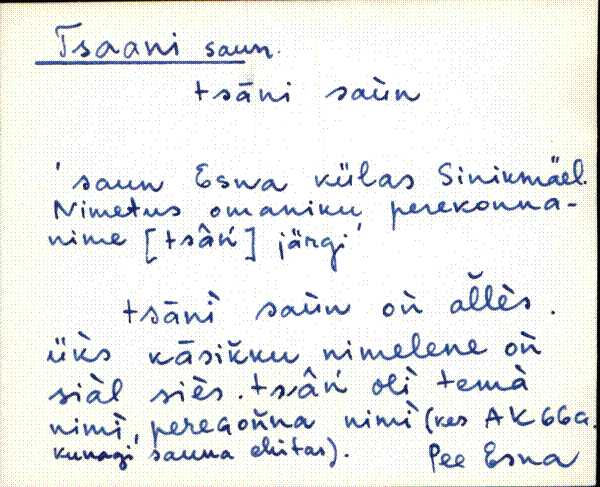 Tsaani saun.
tsāni saùn
'saun Esna külas Sinikmäel.
Nimetus omaniku perekonna-
nime [tsâń] järgi'
tsānì saùn oǹ al̆lès.
üks̀ kāsik̆ku nimelene oǹ
siàl siès. tsâń olì temà
nimì, pereGon̆na nimì (kes AK 66a.
kunagi sauna ehitas). Pee Esna